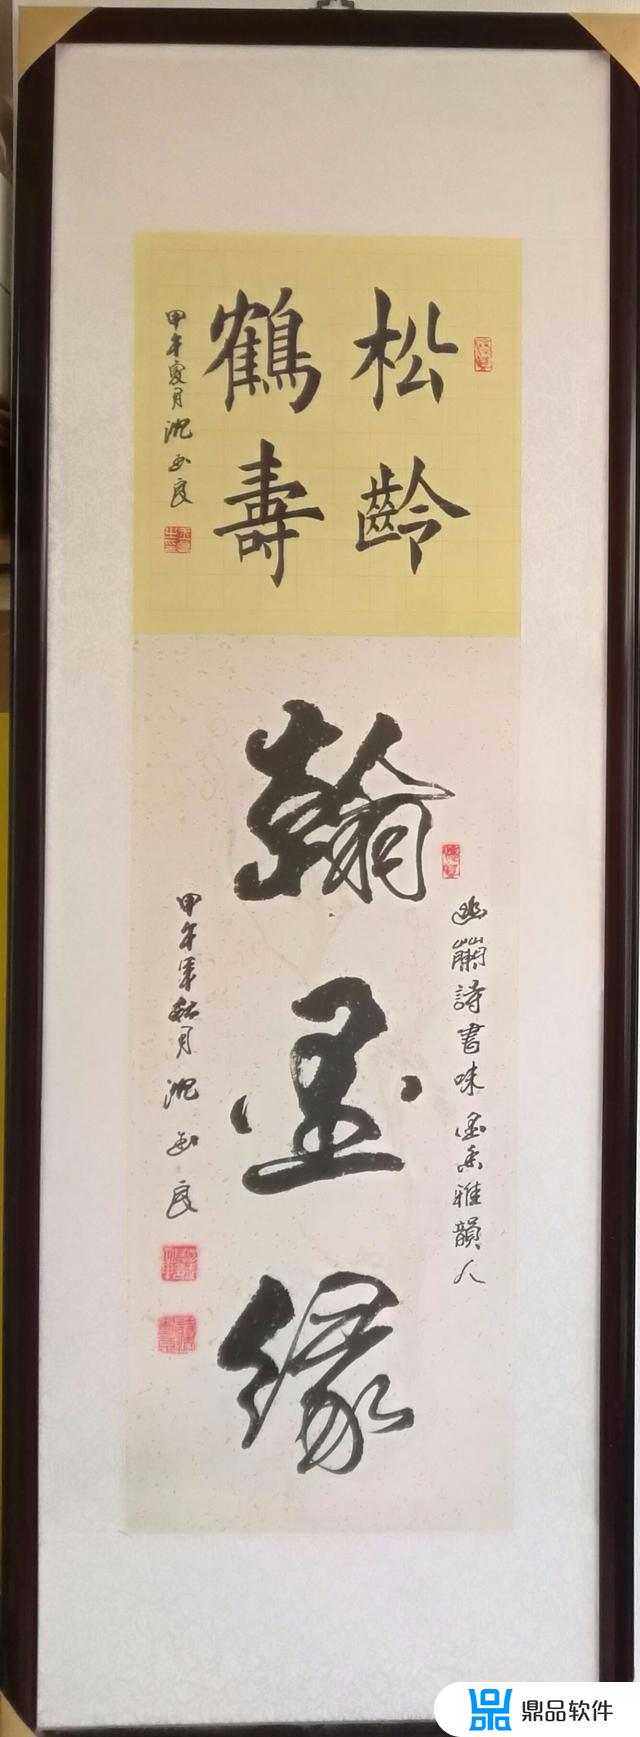 松齡
鶴壽
甲午夏月沈玉良
翰墨缘
幽蘭詩書味墨香雅韻人
甲午年秋月沈玉良
鼎品软件